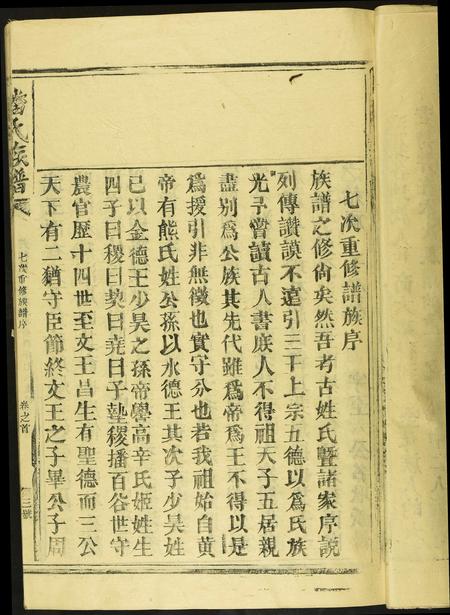 七次重修譜族序
族譜之修尙矣然吾考古姓氏暨諸家序說
列傳讚謨不遠引三干上宗五德以爲氏族
光予嘗讀古人書庶人不得祖天子五居親
盡別爲公族其先代雖爲帝爲王不得以是
爲援引非無徵也實守分也若我祖始自黃
帝有熊氏姓公孫以水德王其次子少昊姓
已以金德王少昊之孫帝嚳高辛氏姬姓生
四子曰稷曰契曰堯曰子摯稷播百谷世守
農官歷十四世至文王昌生有聖德而三公
天下有二猶守臣節終文王之子畢公子周
氏族譜
七次重修族譜序
卷之首
三號